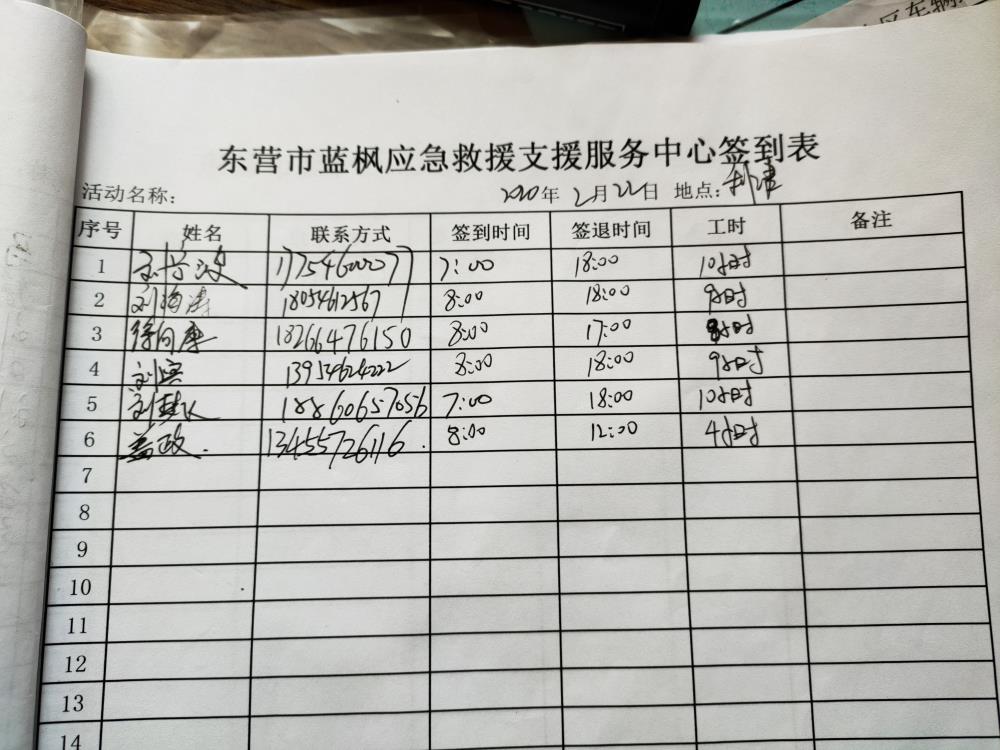 东营市蓝枫应急救援支援服务中心签到表
活动名称： 2020年 2月22日 地点：利津
序号 姓名 联系方式 签到时间 签退时间 工时 备注
1 7:00 18:00 10小时
2 刘海涛 18054612567 8:00 18:00 9小时
3 徐向摩 18266476150 8:00 17:00 8小时
4 刘滨 13954624222 8:00 18:00 9小时
5 18860657056 7:00 18:00 10小时
6 盖政. 13455726116. 8:00 12:00 4小时
7
8
9
10
11
12
13
14